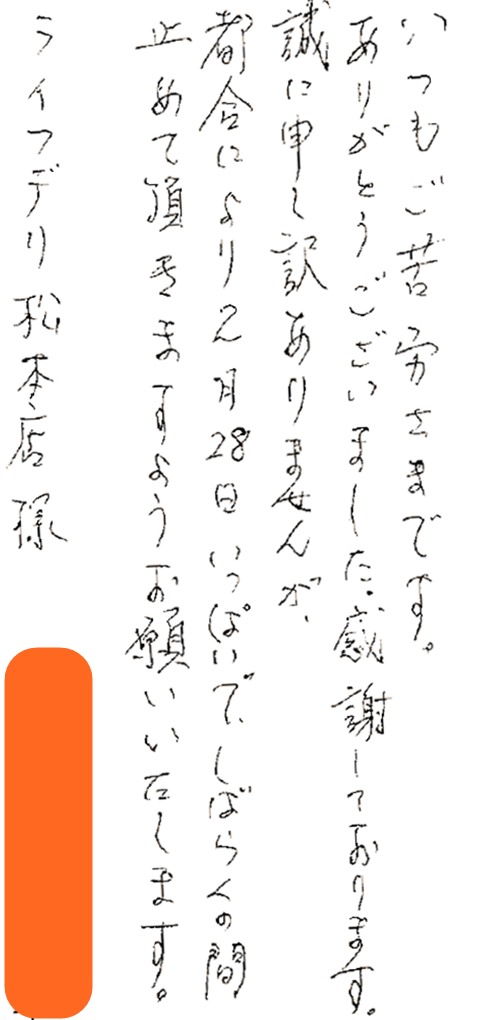 いつもご苦労さまです。
ありがとうございました。感謝しております。
誠に申し訳ありませんが、
都合により2月28日いっぱいで、しばらくの間
止めて頂きますようお願いいたします。
ライフデリ松本店様